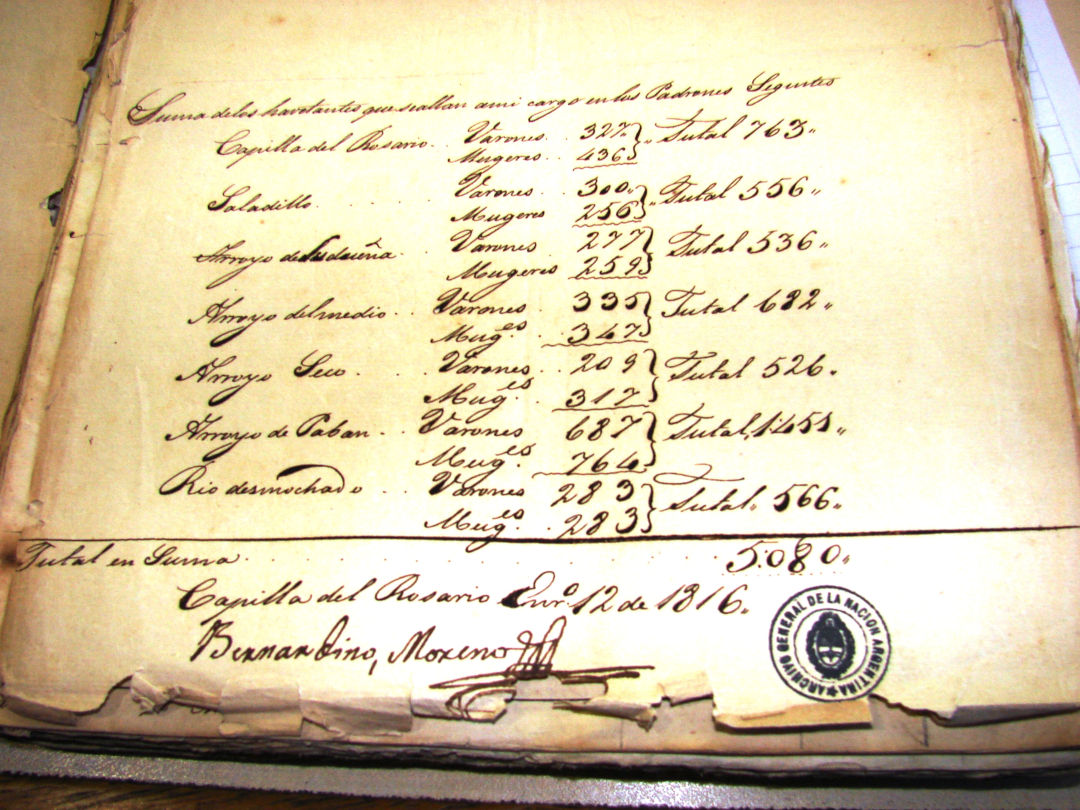 Suma delos havitantes que seallan ami cargo en los Padrones Siguntes
Capilla del Rosario. Varones. 327 Tutal 763
Mugeres. 436
Saladillo Varones. 300 Tutal 556
Mugeres 256
Arroyo de Varones 277 Tutal 536
Mugeres 259
Arroyo del medio Varones. 335 Tutal 682
Mug.es 347
Arroyo Seco. Varones 209 Tutal 526
Mug.es 317
Arroyo de Paban Varones 687 Tutal 1451
Mug.es 764
Rio desmochado Varones 283 Tutal 566
Mug.es 283
Tutal en Suma 5.080
Capilla del Rosario Enrº 12 de 1816
Bernardino, Moreno
ARCHIVO GENERAL DE LA NACION ARGENTINA